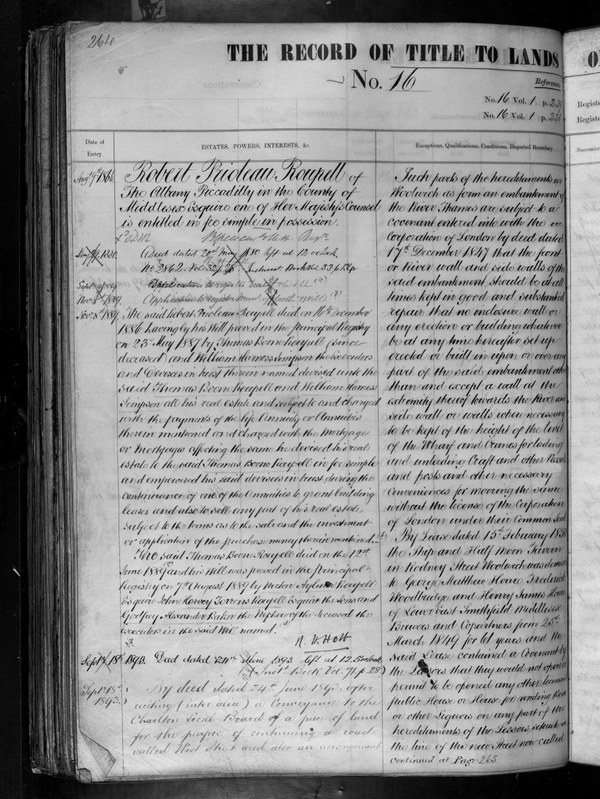 THE RECORD OF TITLE TO LANDS
No. 16
Reference
No. 16 Vol. 1 p.
No. 16 Vol. 1 p.
Date of Entry
ESTATES, POWERS, INTERESTS, &c.
Exceptions, Qualifications, Conditions, Disputed Boundary
Robert Prioleau Roupell of
The Albany Piccadilly in the County of
Middlesex Esquire one of Her Majesty's Counsel
is entitled in fee simple in possession.
Deed dated May 1880 left at 12 o'clock
No. 2862
Nov. 8th 1889
The said Robert Prioleau Roupell died on 16th December
1886 having by his Will proved in the Principal Registry
on 23rd May 1887 by Thomas Boone Roupell (since
deceased) and William Harness Simpson the executors
and Devisees in trust therein named devised unto the
said Thomas Boone Roupell and William Harness
Simpson all his real estate and subject to and charged
with the payments of the life Annuity or Annuities
therein mentioned and charged with the Mortgage
or Mortgages affecting the same he devised his real
estate to the said Thomas Boone Roupell in fee simple
and empowered his said devisees in trust during the
continuance of one of the Annuities to grant building
leases and also to sell any part of his real estate
subject to the terms as to the sale and the investment
or application of the purchase money therein mentioned
The said Thomas Boone Roupell died on the 12th
June 1889 and his Will was proved in the Principal
Registry on 7th August 1889 by Roupell
Esquire John Harvey Torrens Roupell Esquire the Sons and
Godfrey Alexander the Nephew of the deceased the
executors in the said Will named.
Septr. 18th 1893. Deed dated June 1893 left at 12
Vol. 71 p. 28
Septr. 18th 1893.
By deed dated 24th June 1893 after
reciting (inter alia) a Conveyance to the
Charlton Local Board of a piece of land
for the purpose of continuing a road
called West Street and also an
Such parts of the hereditaments in
Woolwich as form an embankment of
the River Thames are subject to a
covenant entered into with the
Corporation of London by deed dated
17th December 1847 that the
or River wall and side walls of the
said embankment should be at all
times kept in good and substantial
repair that no inclosure wall or
any erection or building whatever
be at any time hereafter set up
erected or built in upon or over any
part of the said embankment other
than and except a wall at the
extremity thereof towards the River and
side wall or walls when necessary
to be kept of the height of the level
of the Wharf and Cranes for loading
and unloading Craft and other Vessels
and posts and other necessary
conveniences for mooring the same
without the license of the Corporation
of London under their Common Seal
By Lease dated 15th February 1850
the Ship and Half Moon Tavern
in Rodney Street Woolwich was demised
to George Matthew Howe Frederick
Woodbridge and Henry James Howe
of Smithfield Middlesex
Brewers and Copartners from 25th
March 1849 for 61 years and the
said Lease contained a Covenant by
the Lessors that they would not open or
permit to be opened any other licensed
public House or House for vending Beer
or other Liquors on any part of the
hereditaments of the Lessors
the line of the new Street now called
continued at Page 265